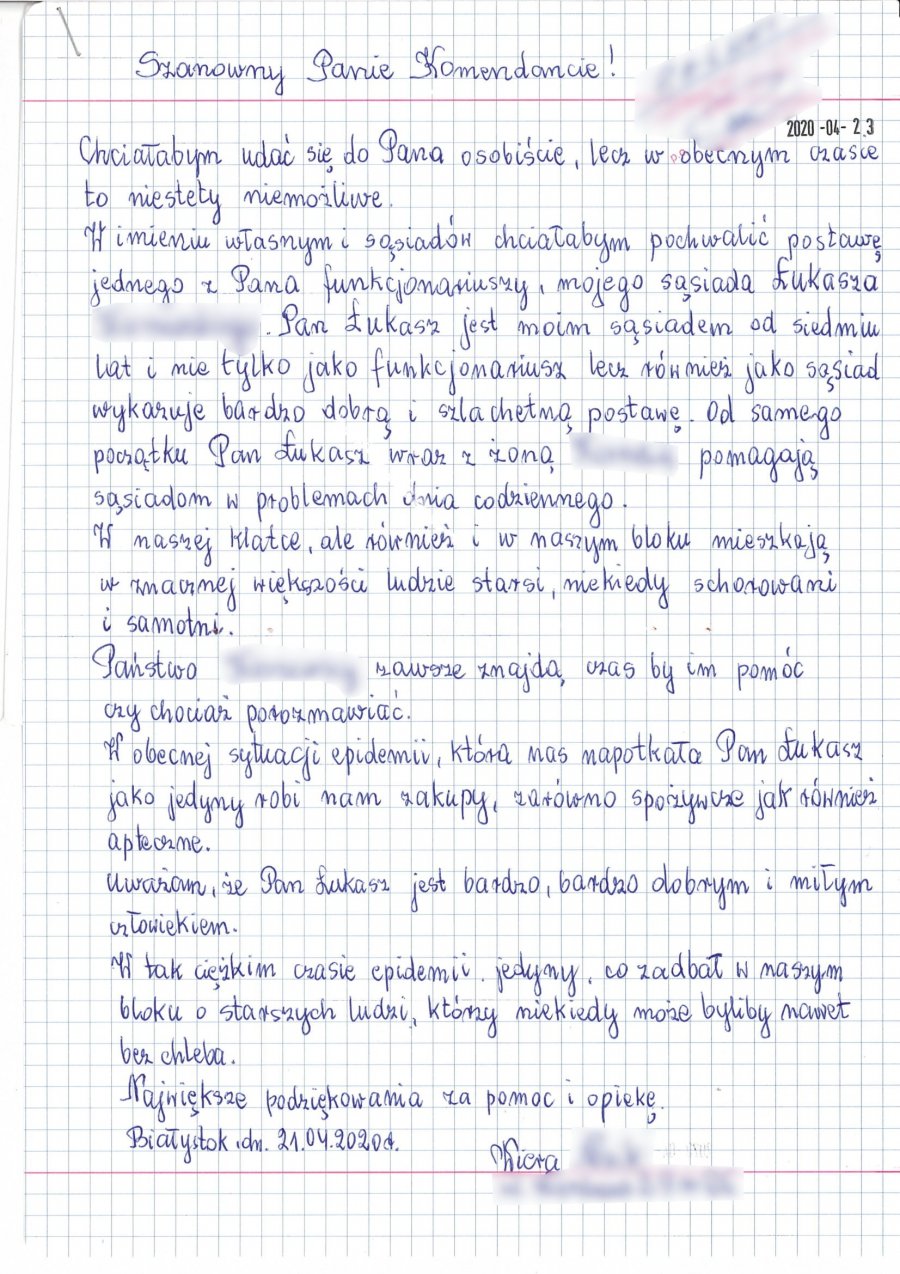 Szanowny Panie Komendancie!
2020 -04- 23
Chciałabym udać się do Pana osobiście, lecz w obecnym czasie
to niestety niemożliwe.
W imieniu własnym i sąsiadów chciałabym pochwalić postawę
jednego z Pana funkcjonariuszy, mojego sąsiada Łukasza
. Pan Łukasz jest moim sąsiadem od siedmiu
lat i nie tylko jako funkcjonariusz lecz również jako sąsiad
wykazuje bardzo dobrą i szlachetną postawę. Od samego
początku Pan Łukasz wraz z żoną pomagają
sąsiadom w problemach dnia codziennego.
W naszej klatce, ale również i w naszym bloku mieszkają
w znacznej większości ludzie starsi, niekiedy schorowani
i samotni.
Państwo zawsze znajdą czas by im pomóc
czy chociaż porozmawiać.
W obecnej sytuacji epidemii, która nas napotkała Pan Łukasz
jako jedyny robi nam zakupy, zarówno spożywcze jak również
apteczne.
Uważam, że Pan Łukasz jest bardzo, bardzo dobrym i miłym
człowiekiem.
W tak ciężkim czasie epidemii, jedyny, co zadbał w naszym
bloku o starszych ludzi, którzy niekiedy może byliby nawet
bez chleba.
Największe podziękowania za pomoc i opiekę.
Białystok dn. 21.04.2020r.
Wiera